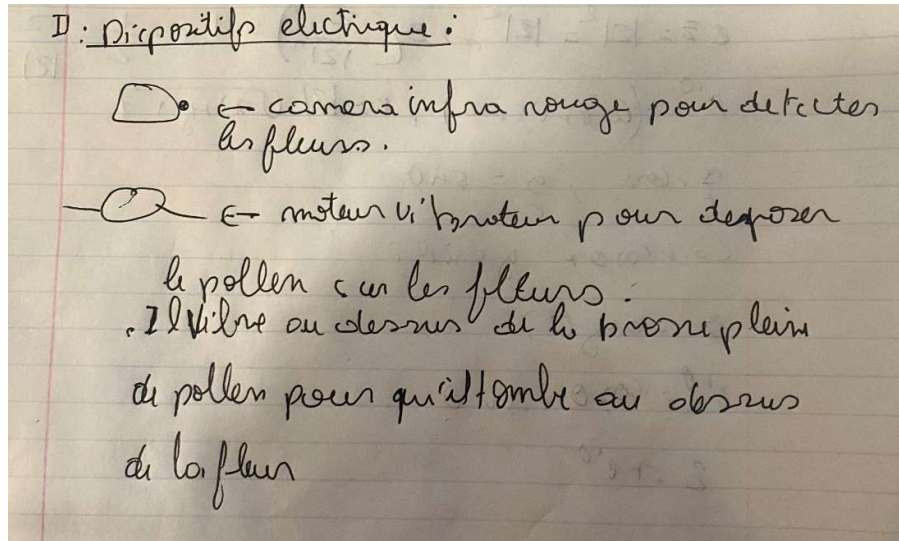 I : Dispositifs electrique :
← camera infra rouge pour detectes
les fleurs.
← moteur vibrateur pour deposer
le pollen sur les fleurs.
. Il vibre au dessus de la brosse pleine
de pollen pour qu'il tombe au dessus
de la fleur